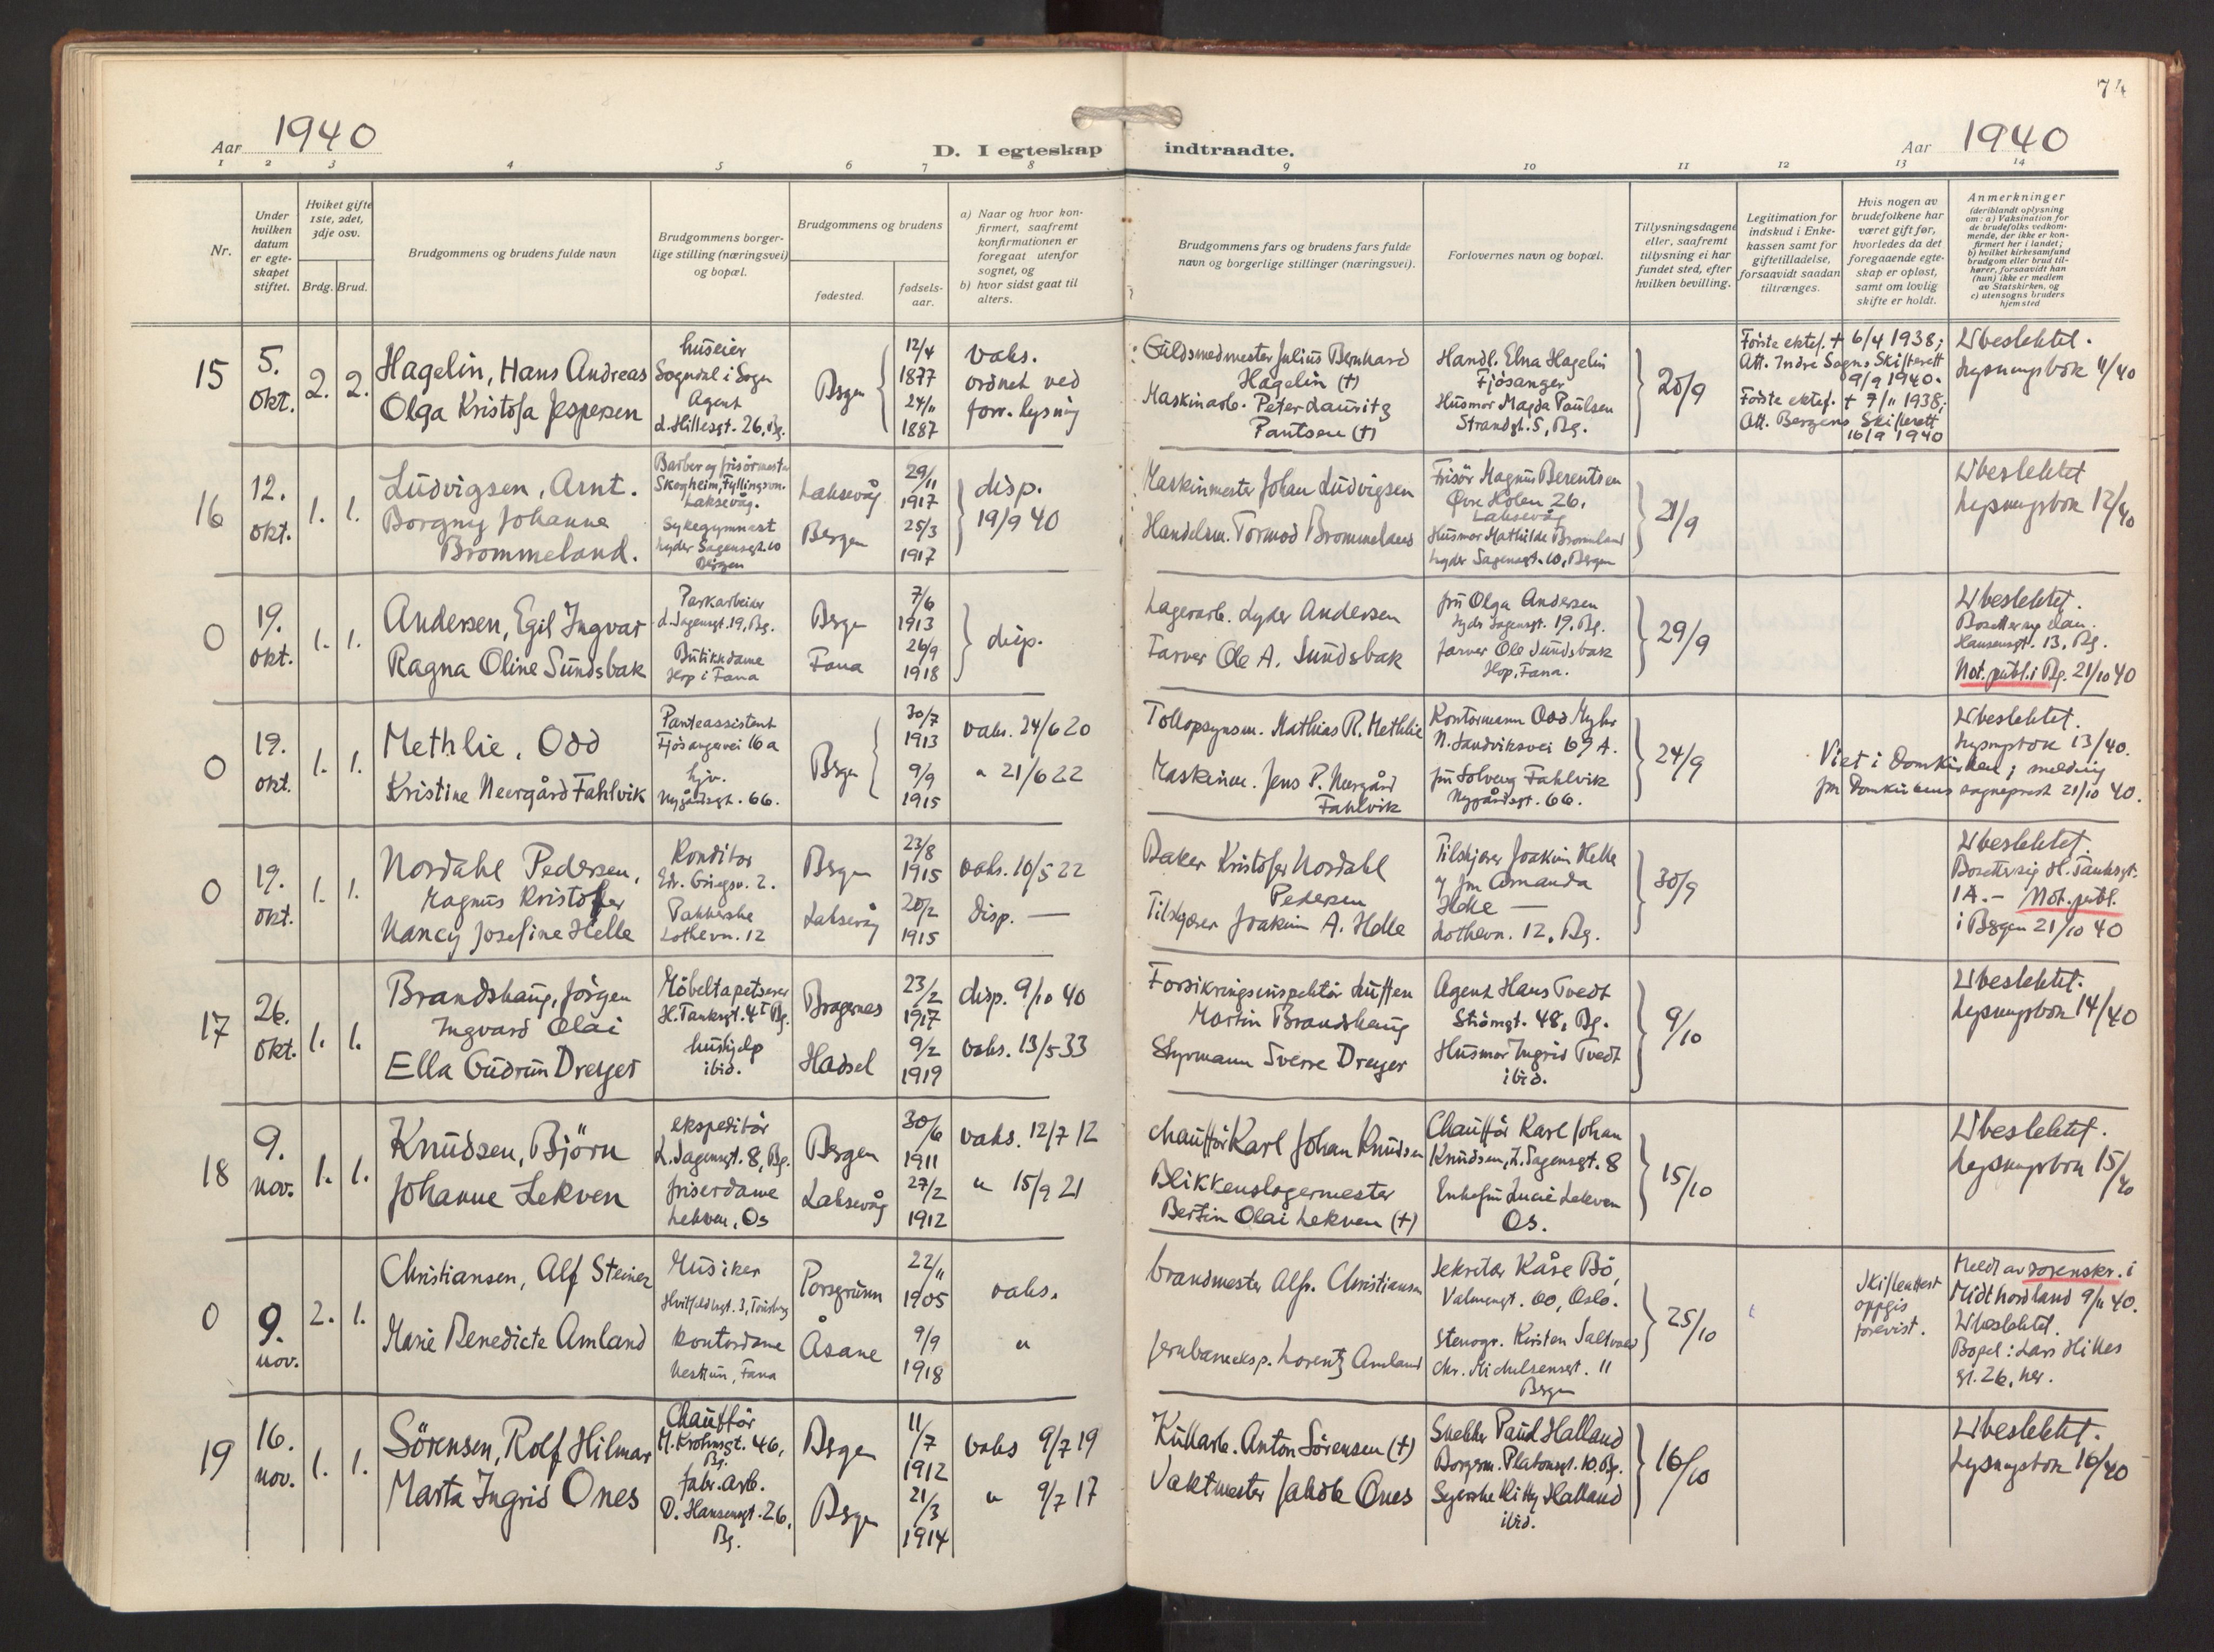 74
Aar 1940
D. I egteskap indtraadte.
Aar 1940
1 2 3 4 5 6 7 8 9 10 11 12 13 14
Nr.
Under hvilken datum er egteskapet stiftet.
Hviket gifte 1ste, 2det, 3dje osv.
Brdg. Brud.
Brudgommens og brudens fulde navn
Brudgommens borgerlige stilling (næringsvei) og bopæl.
Brudgommens og brudens
fødested.
fødselsaar.
a) Naar og hvor konfirmert, saafremt konfirmationen er foregaat utenfor sognet, og
b) hvor sidst gaat til alters.
Brudgommens fars og brudens fars fulde navn og borgerlige stillinger (næringsvei).
Forlovernes navn og bopæl.
Tillysningsdagene eller, saafremt tillysning ei har fundet sted, efter hvilken bevilling.
Legitimation for indskud i Enkekassen samt for giftetilladelse, forsaavidt saadan tiltrænges.
Hvis nogen av brudefolkene har været gift før, hvorledes da det foregaaende egteskap er opløst, samt om lovlig skifte er holdt.
Anmerkninger
(deriblandt oplysning om: a) Vaksination for de brudefolks vedkommende, der ikke er konfirmert her i landet;
b) hvilket kirkesamfund brudgom eller brud tilhører, forsaavidt han (hun) ikke er medlem av Statskirken, og
c) utensogns bruders hjemsted
15
5. okt.
2. 2.
Hagelin, Hans Andreas
Olga Kristofa Jespersen
huseier
Sogndal i Sogn
Agent
d. Hillesgt. 26, Bg.
Bergen
12/4 1877
24/11 1887
vaks.
ordnet ved
forr. lysning
Guldsmedmester Julius Bernhard
Hagelin (+)
Maskinarb. Peter Lauritz
Pantsen (+)
Handl. Elna Hagelin
Fjøsanger
Husmor Magda Paulsen
Strandgt. 5, Bg.
20/9
Første ektef. + 6/4 1938;
Att. Indre Sogns Skifterett
9/9 1940.
Første ektef. + 7/11 1938;
Att. Bergens Skifterett
16/9 1940
Ubeslektet.
Lysningsbok 11/40
16
12. okt.
1. 1.
Ludvigsen, Arnt.
Borgny Johanne
Brommeland.
Barber og frisörmester
Skogheim, Fyllingsvn.
Laksevåg.
Sykegymnast
Lyder Sagensgt. 10
Bergen
Laksevåg
Bergen
29/11 1917
25/3 1917
disp.
19/9 40
Maskinmester Johan Ludvigsen
Handelsm. Tormod Brommeland
Frisör Magnus Berentsen
Øvre Holen 26,
Laksevåg
Husmor Mathilde Bromeland
Lyder Sagensgt. 10, Bergen
21/9
Ubeslektet
Lysningsbok 12/40
0
19. okt.
1. 1.
Andersen, Egil Ingvar
Ragna Oline Sundsbak
Parkarbeider
d. Sagensgt. 19, Bg.
Butikkdame
Hop i Fana
Bergen
Fana
7/6 1913
26/9 1918
disp.
Lagerarb. Lyder Andersen
Farver Ole A. Sundsbak
fru Olga Andersen
Lyder Sagensgt. 19, Bg.
farver Ole Sundsbak
Hop, Fana.
29/9
Ubeslektet.
Bosetter seg Dan.
Hansensgt. 13, Bg.
Not. publ. i Bg. 21/10 40
0
19. okt.
1. 1.
Methlie, Odd
Kristine Neergård Fahlvik
Panteassistent
Fjøsangervei 16 a
hjv.
Nygårdsgt. 66.
Bergen
30/7 1913
9/9 1915
vaks. 24/6 20
" 21/6 22
Tollopsynsm. Mathias R. Methlie
Maskinm. Jens P. Neergård
Fahlvik
Kontormann Odd Myhr
N. Sandviksvei 69 A.
fru Solveig Fahlvik
Nygårdsgt. 66.
24/9
Ubeslektet.
Lysningsbok 13/40.
Viet i Domkirken; melding
fra Domkirkens sogneprest 21/10 40.
0
19. okt.
1. 1.
Nordahl Pedersen,
Magnus Kristofer
Nancy Josefine Helle
Konditor
Edv. Griegsv. 2.
Pakkerske
Lothevn. 12
Bergen
Laksevåg
23/8 1915
20/2 1915
vaks. 10/5 22
disp. —
Baker Kristofer Nordahl
Pedersen
Tilskjærer Joakim A. Helle
Tilskjærer Joakim Helle
og fru Amanda
Helle —
Lothevn. 12, Bg.
30/9
Ubeslektet.
Bosetter sig H. Tanksgt.
1 A. — Not. publ.
i Bergen 21/10 40
17
26. okt.
1. 1.
Brandshaug, Jörgen
Ingvard Olai
Ella Gudrun Dreyer
Möbeltapetserer
H. Tanksgt. 4 I Bg.
hushjelp
ibid.
Bragernes
Hadsel
23/2 1917
9/2 1919
disp. 9/10 40
vaks. 13/5 33
Forsikringsinspektör
Martin Brandshaug
Styrmann Sverre Dreyer
Agent Hans Tvedt
Strömgt. 48, Bg.
Husmor Ingrid Tvedt
ibid.
9/10
Ubeslektet.
Lysningsbok 14/40
18
9. nov.
1. 1.
Knudsen, Björn
Johanne Lekven
ekspeditör
L. Sagensgt. 8, Bg.
friserdame
Lekven, Os
Bergen
Laksevåg
30/6 1911
27/2 1912
vaks. 12/7 12
" 15/9 21
chaufför Karl Johan Knudsen
Blikkenslagermester
Bertin Olai Lekven (+)
Chauffør Karl Johan
Knudsen, L. Sagensgt. 8
Enkefru Lucie Lekven
Os.
15/10
Ubeslektet.
Lysningsbok 15/40
0
9. nov.
2. 1.
Christiansen, Alf Steiner
Marie Benedicte Amland
Musiker
Hvitfeldtsgt. 3, Tönsberg
kontordame
Nesttun, Fana
Porsgrunn
Åsane
22/11 1905
9/9 1918
vaks.
"
brandmester Alfr. Christiansen
jernbaneeksp. Lorentz Amland
Sekretær Kåre Bö,
Valmuegt. 60, Oslo.
Stenogr. Kirsten
Chr. Michelsensgt. 11
Bergen
25/10
Skifteattest
oppgis
forevist.
Meldt av sorenskr. i
Midthordland 9/11 40.
Ubeslektet.
Bopel: Lars Hilles
gt. 26, her.
19
16. nov.
1. 1.
Sörensen, Rolf Hilmar
Marta Ingrid Ones
Chaufför
M. Krohnsgt. 46,
Bg.
fabr. arb.
D. Hansensgt. 26,
Bg.
Bergen
Bergen
11/7 1912
21/3 1914
vaks 9/7 19
" 9/7 17
Kullarb. Anton Sörensen (+)
Vaktmester Jakob Ones
Snekker Paul Halland
Borgerm. Platousgt. 10. Bg.
Syerske Kitty Halland
ibid.
16/10
Ubeslektet.
Lysningsbok 16/40